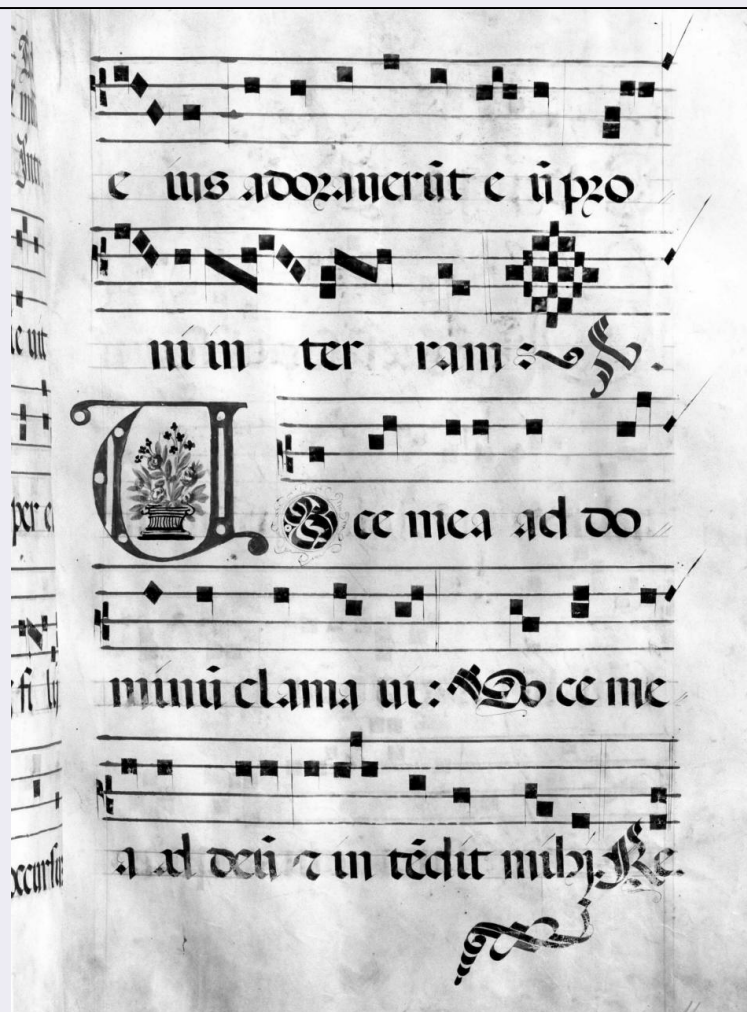 e ius adorauerūt e ū pro
ni in ter ram :
U Oce mea ad do
minū clama ui : Uo ce me
a ad deū ⁊ in tēdit mihi. Re.